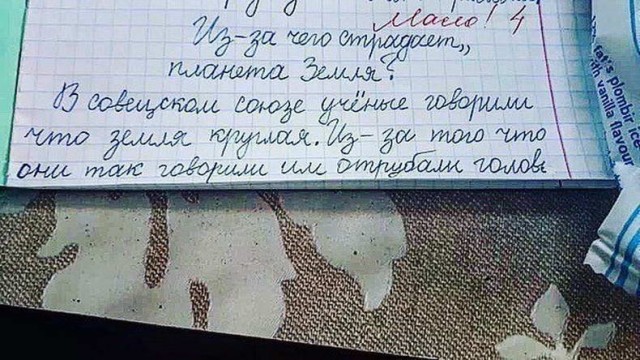 Мало! 4
Из-за чего страдает,,
планета Земля?
В совецском союзе учёные говорили
что земля круглая. Из-за того что
они так говорили им отрубали головы
fat's plombir
with vanilla flavour